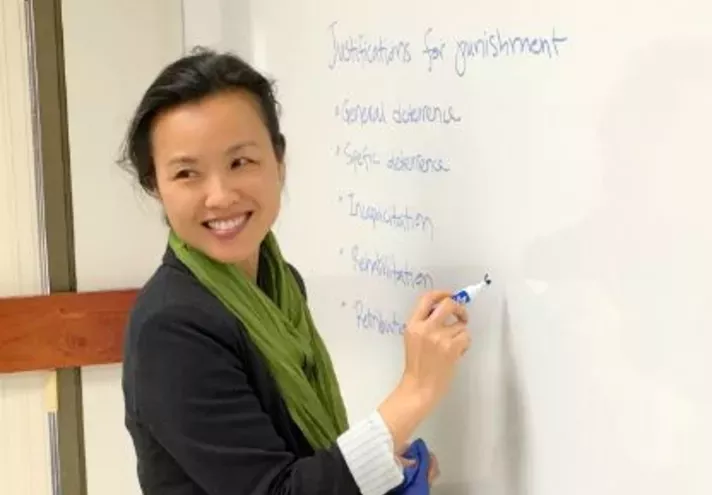 Justifications for punishment
• General deterrence
• Speific deterrence
• Incapacitation
• Rehabilitation
• Retributio